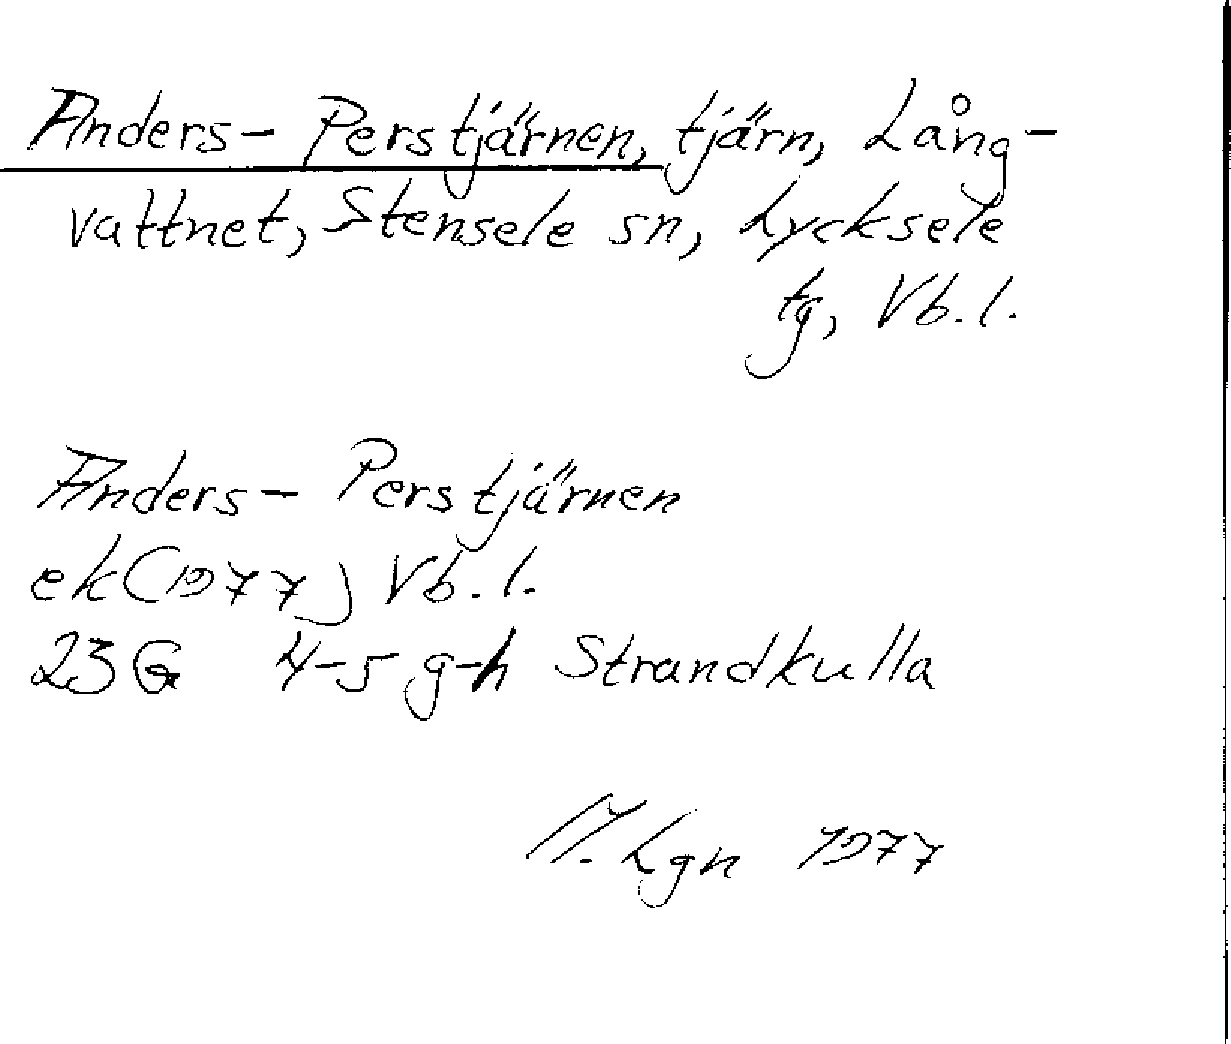 Anders-Perstjärnen, tjärn, Lång-
vattnet, Stensele sn, Lycksele
tg, Vb.l.
Anders-Perstjärnen
ek(1977) Vb.l.
23G 4-5 g-h Strandkulla
M. Lgn 1977